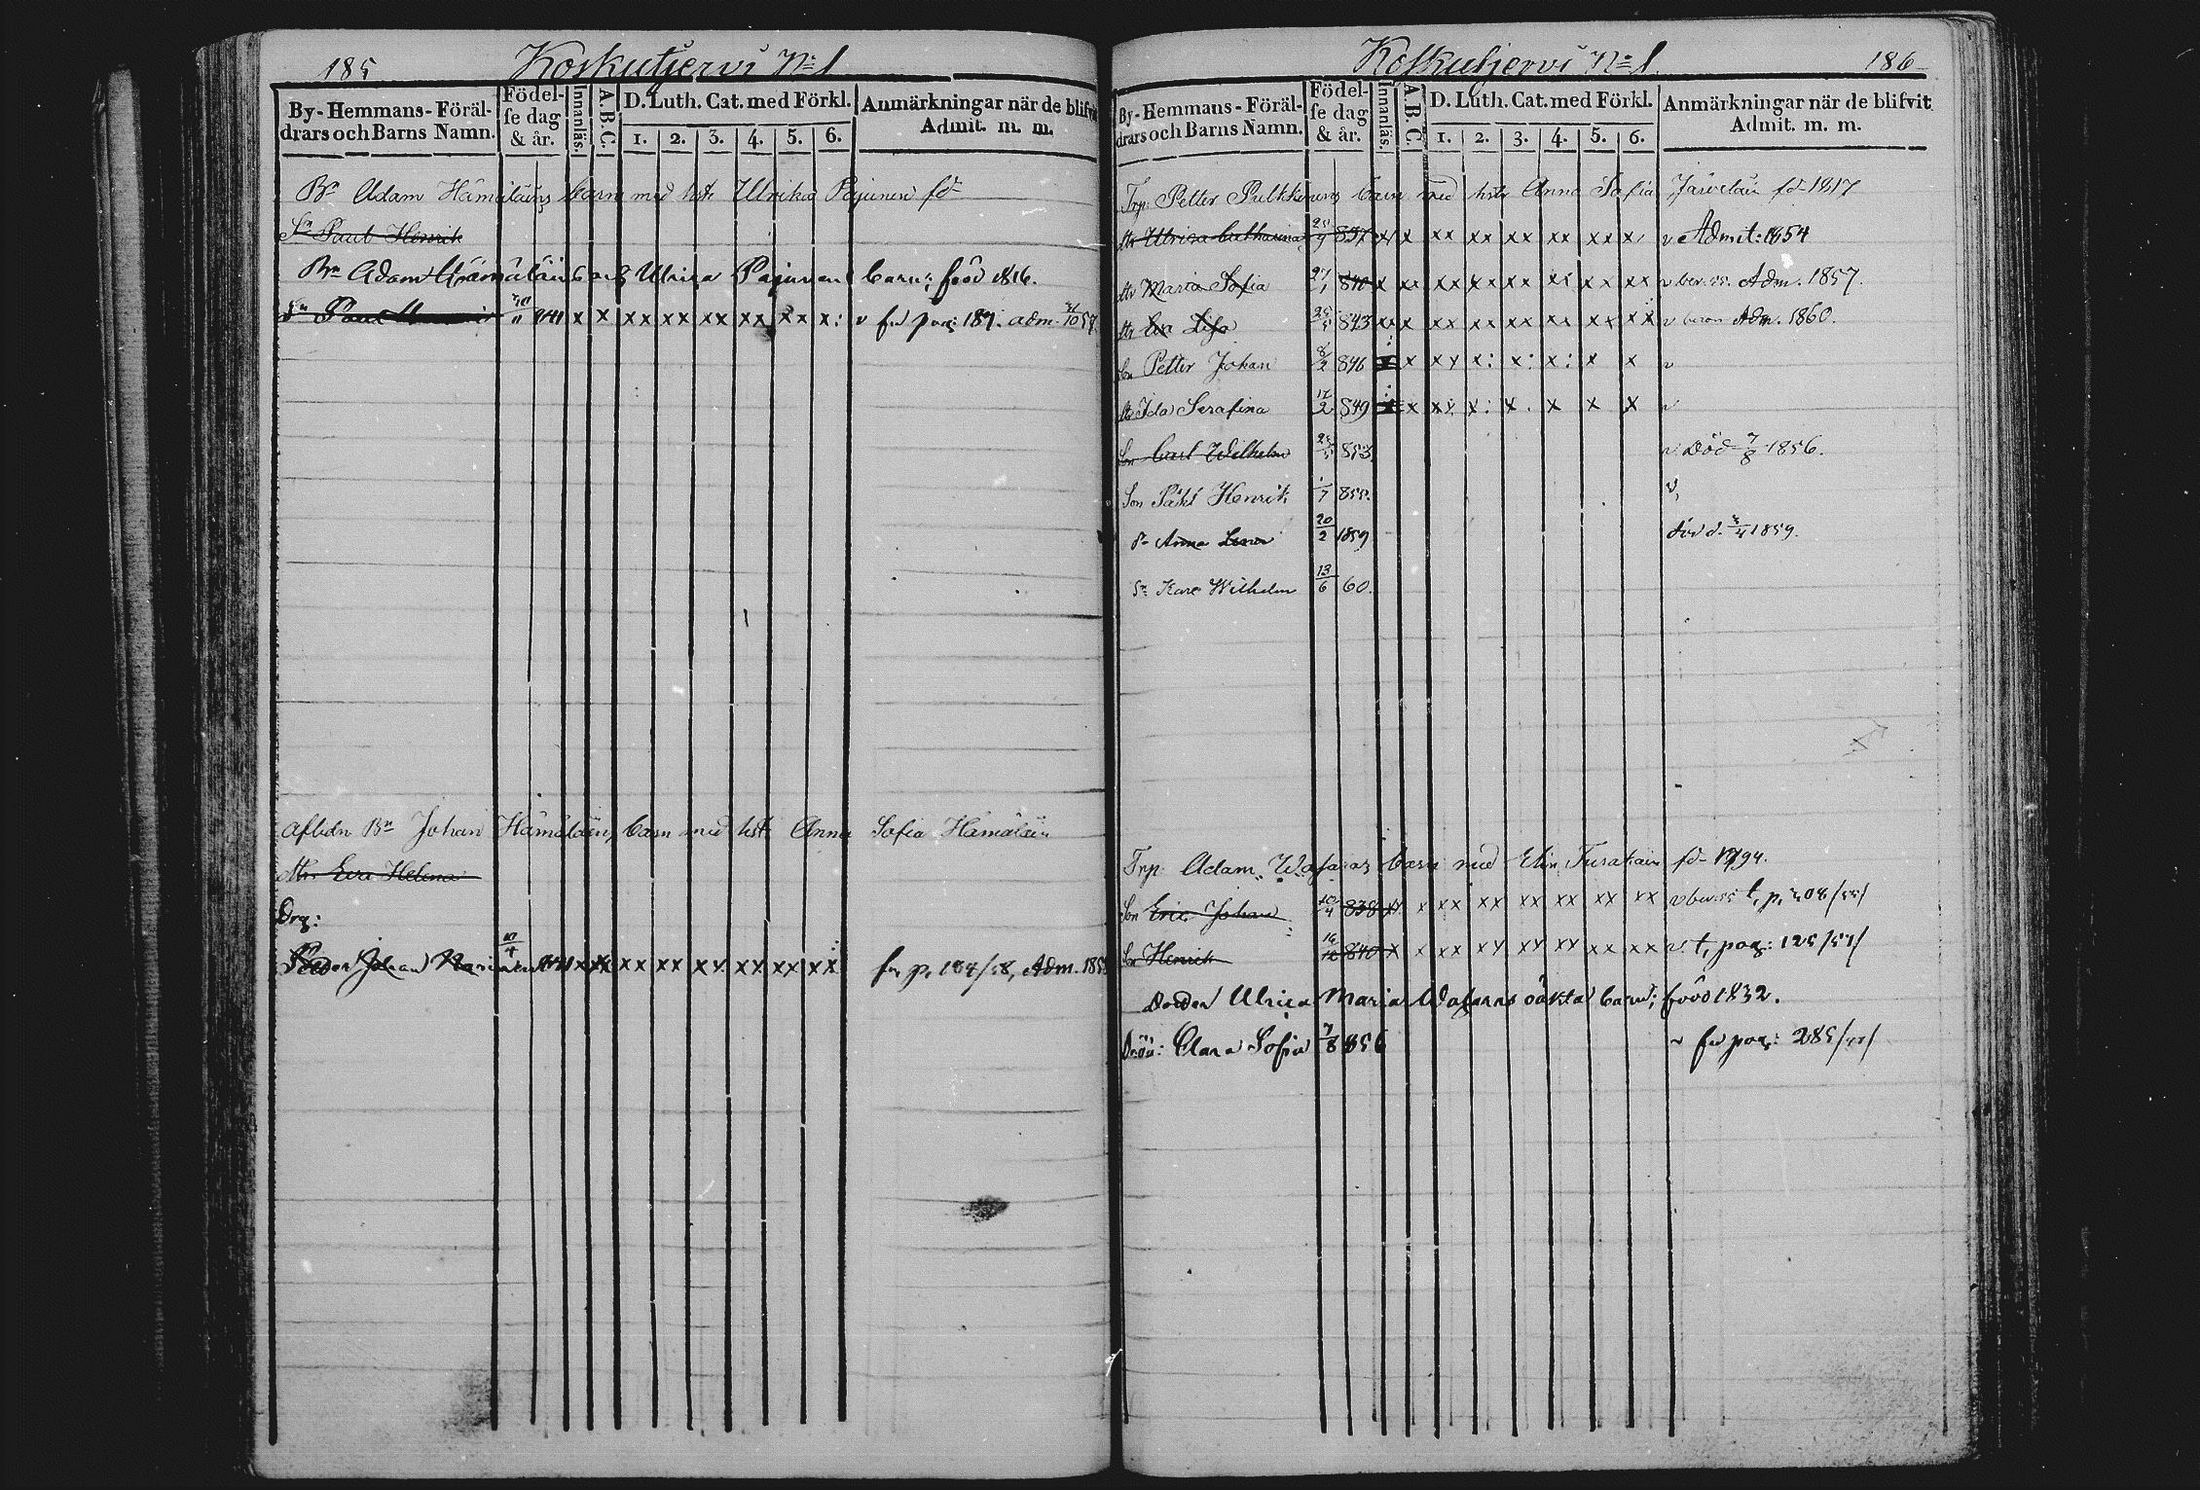 185
Koskutjervi No 1
By- Hemmans- Föräl-
drars och Barns Namn.
Födel-
se dag
& år.
Innanläs.
A.B.C.
D. Luth. Cat. med Förkl.
1. 2. 3. 4. 5. 6.
Anmärkningar när de blifvit
Admit. m. m.
Bn Adam Hämäläins barn med hst Ulrika Pajunen fd
Sn Paul Henrik
Bn Adam Hämäläins och Ulrica Pajunens barn; född 1816.
Sn Paul 11 841 x x xx xx xx xx xx x: v adm. 57.
Afledn Bn Johan Hämäläins barn med hst Anna Sofia Hämäläin
dtr Eva Helena
Drg:
Peder Johan xx xx xx xx xx xx xx p. 184/58, Adm. 185
Koskutjervi No 1.
186
By- Hemmans- Föräl-
drars och Barns Namn.
Födel-
se dag
& år.
Innanläs.
A.B.C.
D. Luth. Cat. med Förkl.
1. 2. 3. 4. 5. 6.
Anmärkningar när de blifvit
Admit. m. m.
Trp: Petter Pulkkinens barn med hstr Anna Sofia Järveläin fd 1817
dtr Ulrica Catharina 837 x x xx xx xx xx xx x v Admit: 1854
dtr Maria Sofia 27/1 840 x xx xx xx xx xx xx xx v Adm. 1857.
dtr Eva Lisa 25/5 843 xx x xx xx xx xx xx xx v Adm. 1860.
Son Petter Johan 8/2 846 x x xx x: x: x: x x v
dtr Ida Serafina 17/2 849 x x xx x: x. x x x v
Son Carl Wilhelm 853 v Död 7/8 1856.
Son Henrik 1/7 855. v,
Anna Lena 20/2 1859 död d. 1859.
Sn Karl Wilhelm 13/6 60.
Trp: Adam barn med Elin Turakain fd 1794.
Son Eric Johan 10/4 838 xx x xx xx xx xx xx xx v
Son Henrik 840 x x xx xx xx xx xx xx v. t, pag: 125/57/
Ulrica Maria oäkta barn; född 1832.
Clara Sofia 7/8 856 v pag: 285/